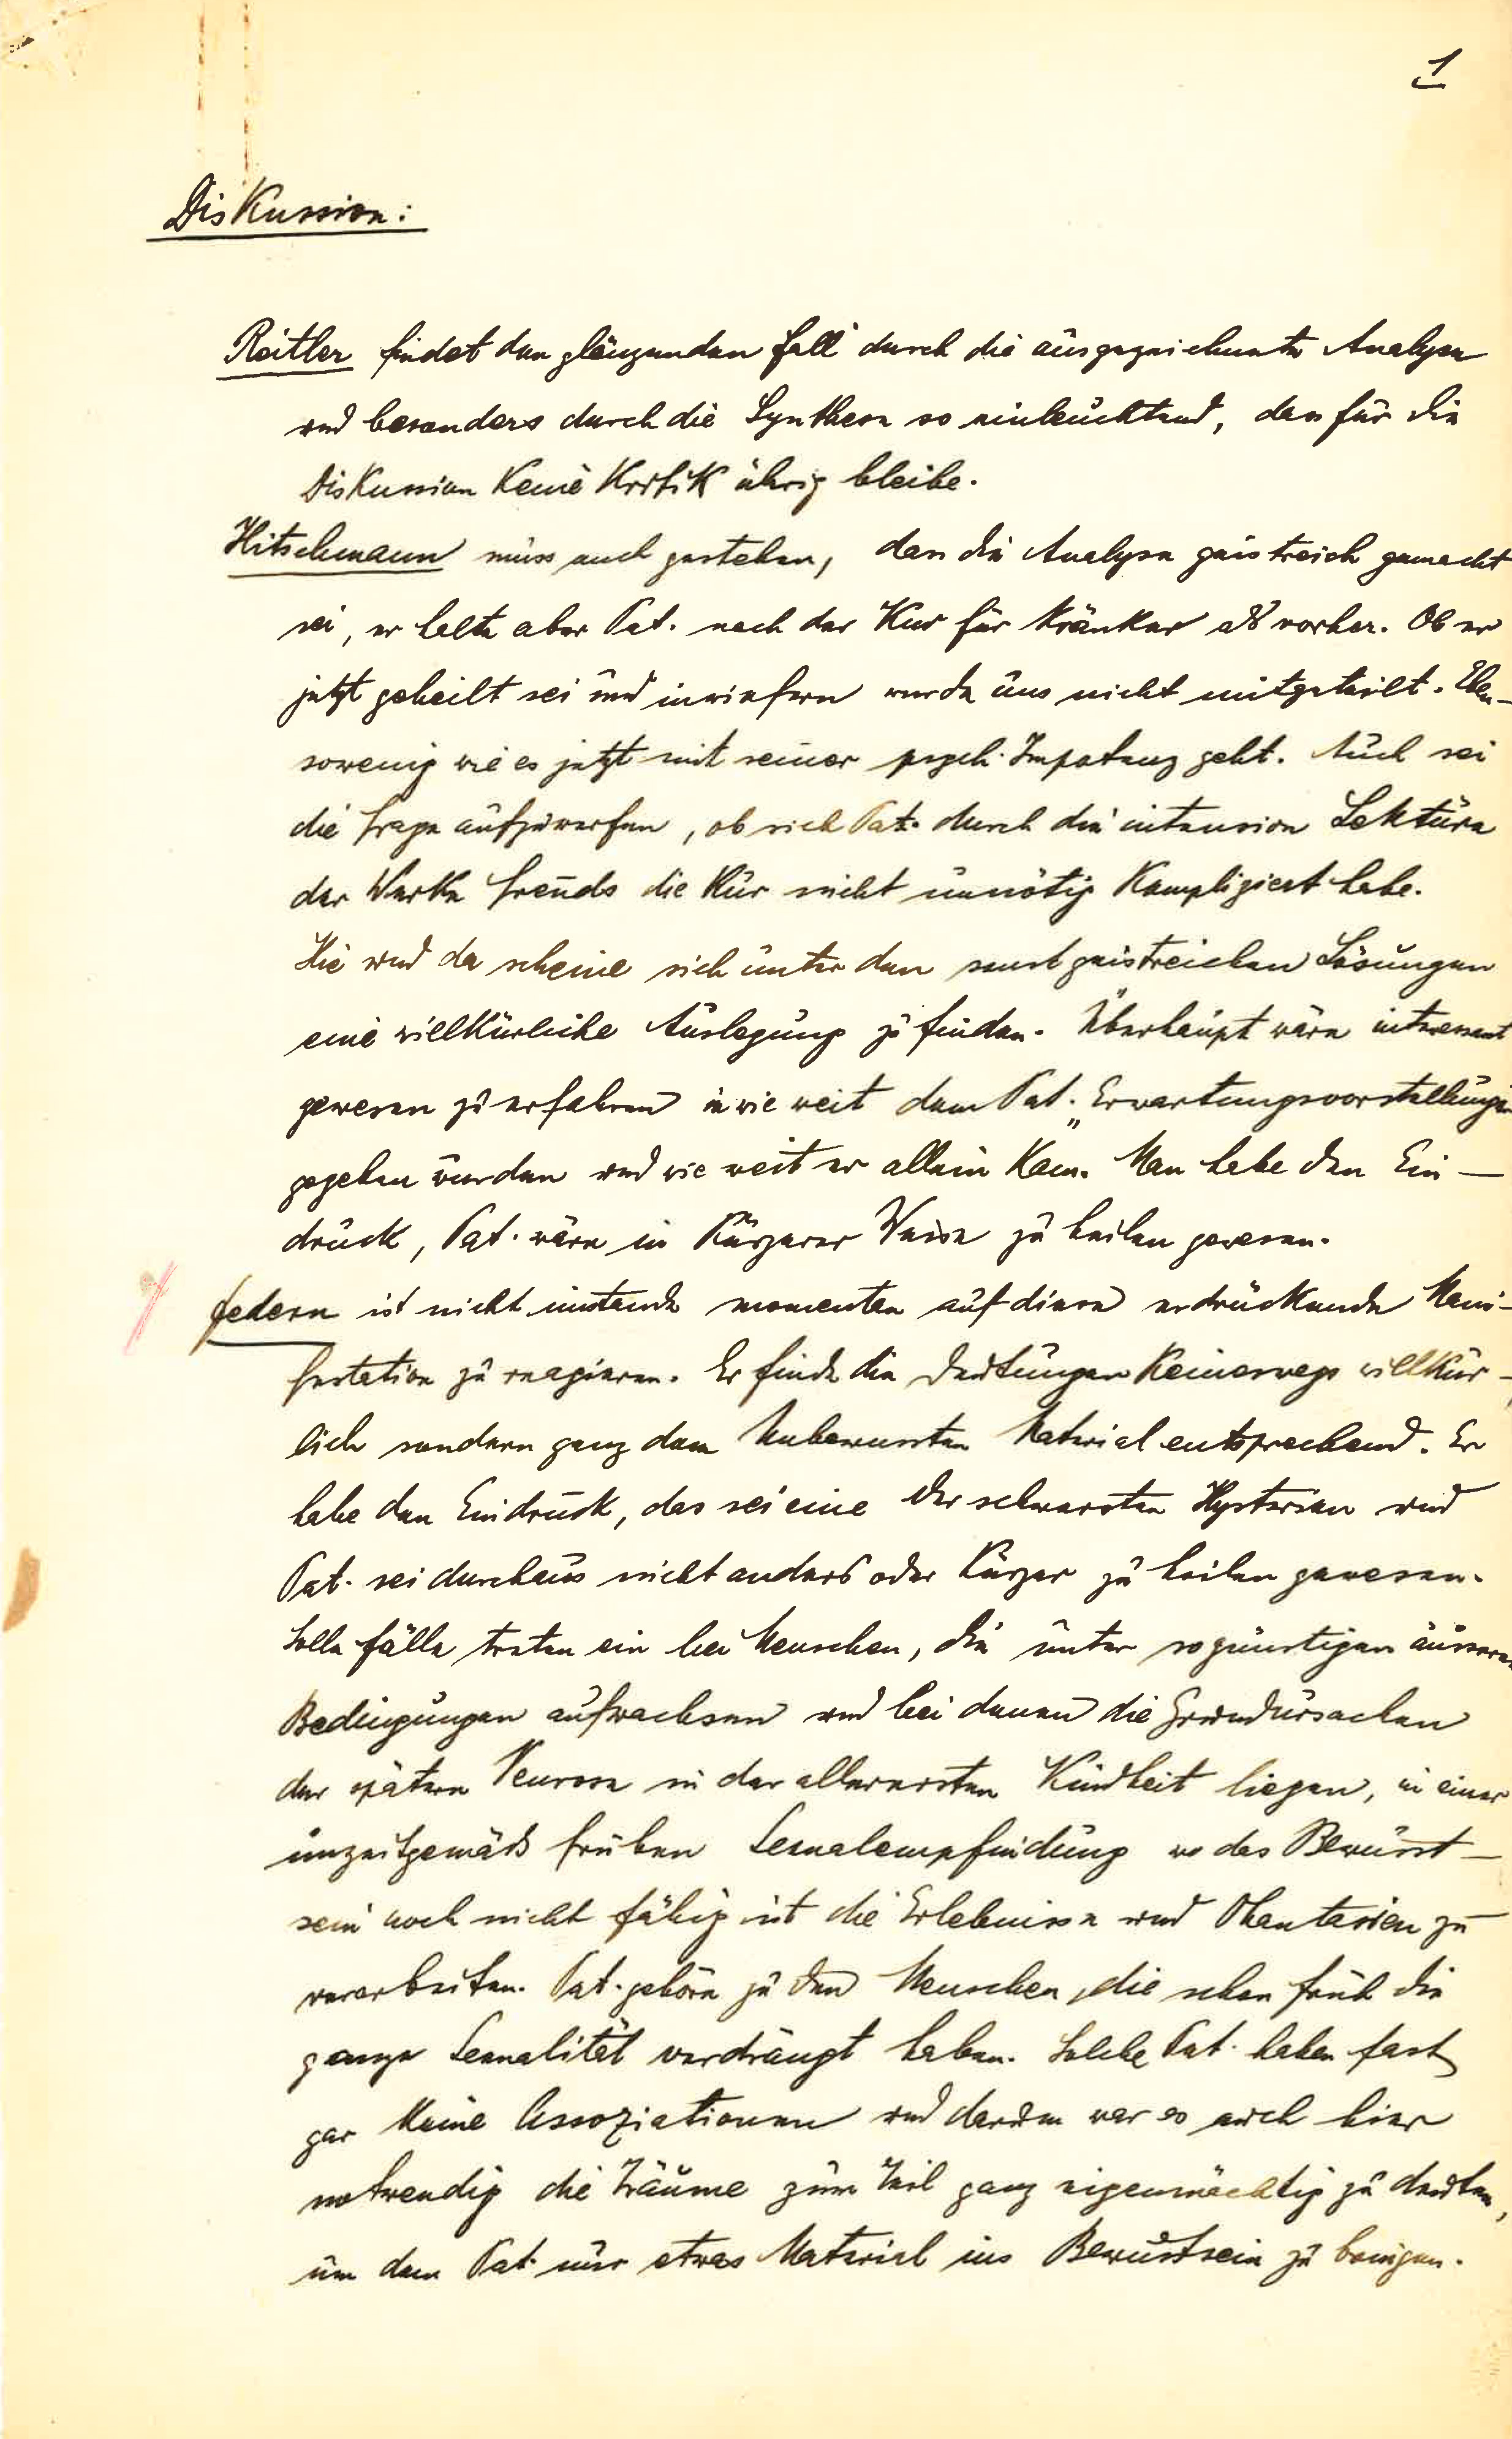 1
Diskussion:
Reitler findet den glänzenden Fall durch die ausgezeichnete Analyse
und besonders durch die Synthese so einleuchtend, dass für die
Diskussion keine Kritik übrig bleibe.
Hitschmann muss auch gestehen, dass die Analyse geistreich gemacht
sei, er halte aber Pat. nach der Kur für kränker als vorher. Ob er
jetzt geheilt sei und inwiefern wurde uns nicht mitgeteilt. Eben-
sowenig wie es jetzt mit seiner psych. Impotenz geht. Auch sei
die Frage aufzuwerfen, ob sich Pat. durch die intensive Lektüre
der Werke Freuds die Kur nicht unnötig kompliziert habe.
Hie und da scheine sich unter den sonst geistreichen Lösungen
eine willkürliche Auslegung zu finden. Überhaupt wäre interessant
gewesen zu erfahren in wie weit dem Pat. „Erwartungsvorstellungen
gegeben wurden und wie weit er allein kam. Man habe den Ein-
druck, Pat. wäre in kürzerer Weise zu heilen gewesen.
Federn ist nicht imstande momentan auf diese erdrückende Mani-
festation zu reagieren. Er finde die Deutungen keineswegs willkür-
lich sondern ganz dem Unbewussten Material entsprechend. Er
habe den Eindruck, das sei eine der schwersten Hysterien und
Pat. sei durchaus nicht anders oder kürzer zu heilen gewesen.
Solle Fälle treten ein bei Menschen, die unter so günstigen äusseren
Bedingungen aufwachsen und bei denen die Grundursachen
der spätern Neurose in der allerersten Kindheit liegen, in einer
unzeitgemäss frühen Sexualempfindung wo das Bewusst-
sein noch nicht fähig ist die Erlebnisse und Phantasien zu
verarbeiten. Pat. gehöre zu den Menschen, die schon früh die
ganze Sexualität verdrängt haben. Solche Pat. haben fast
gar keine Assoziationen und darum war es auch hier
notwendig die Träume zum Teil ganz eigenmächtig zu deuten,
um dem Pat. nur etwas Material ins Bewusstsein zu bringen.